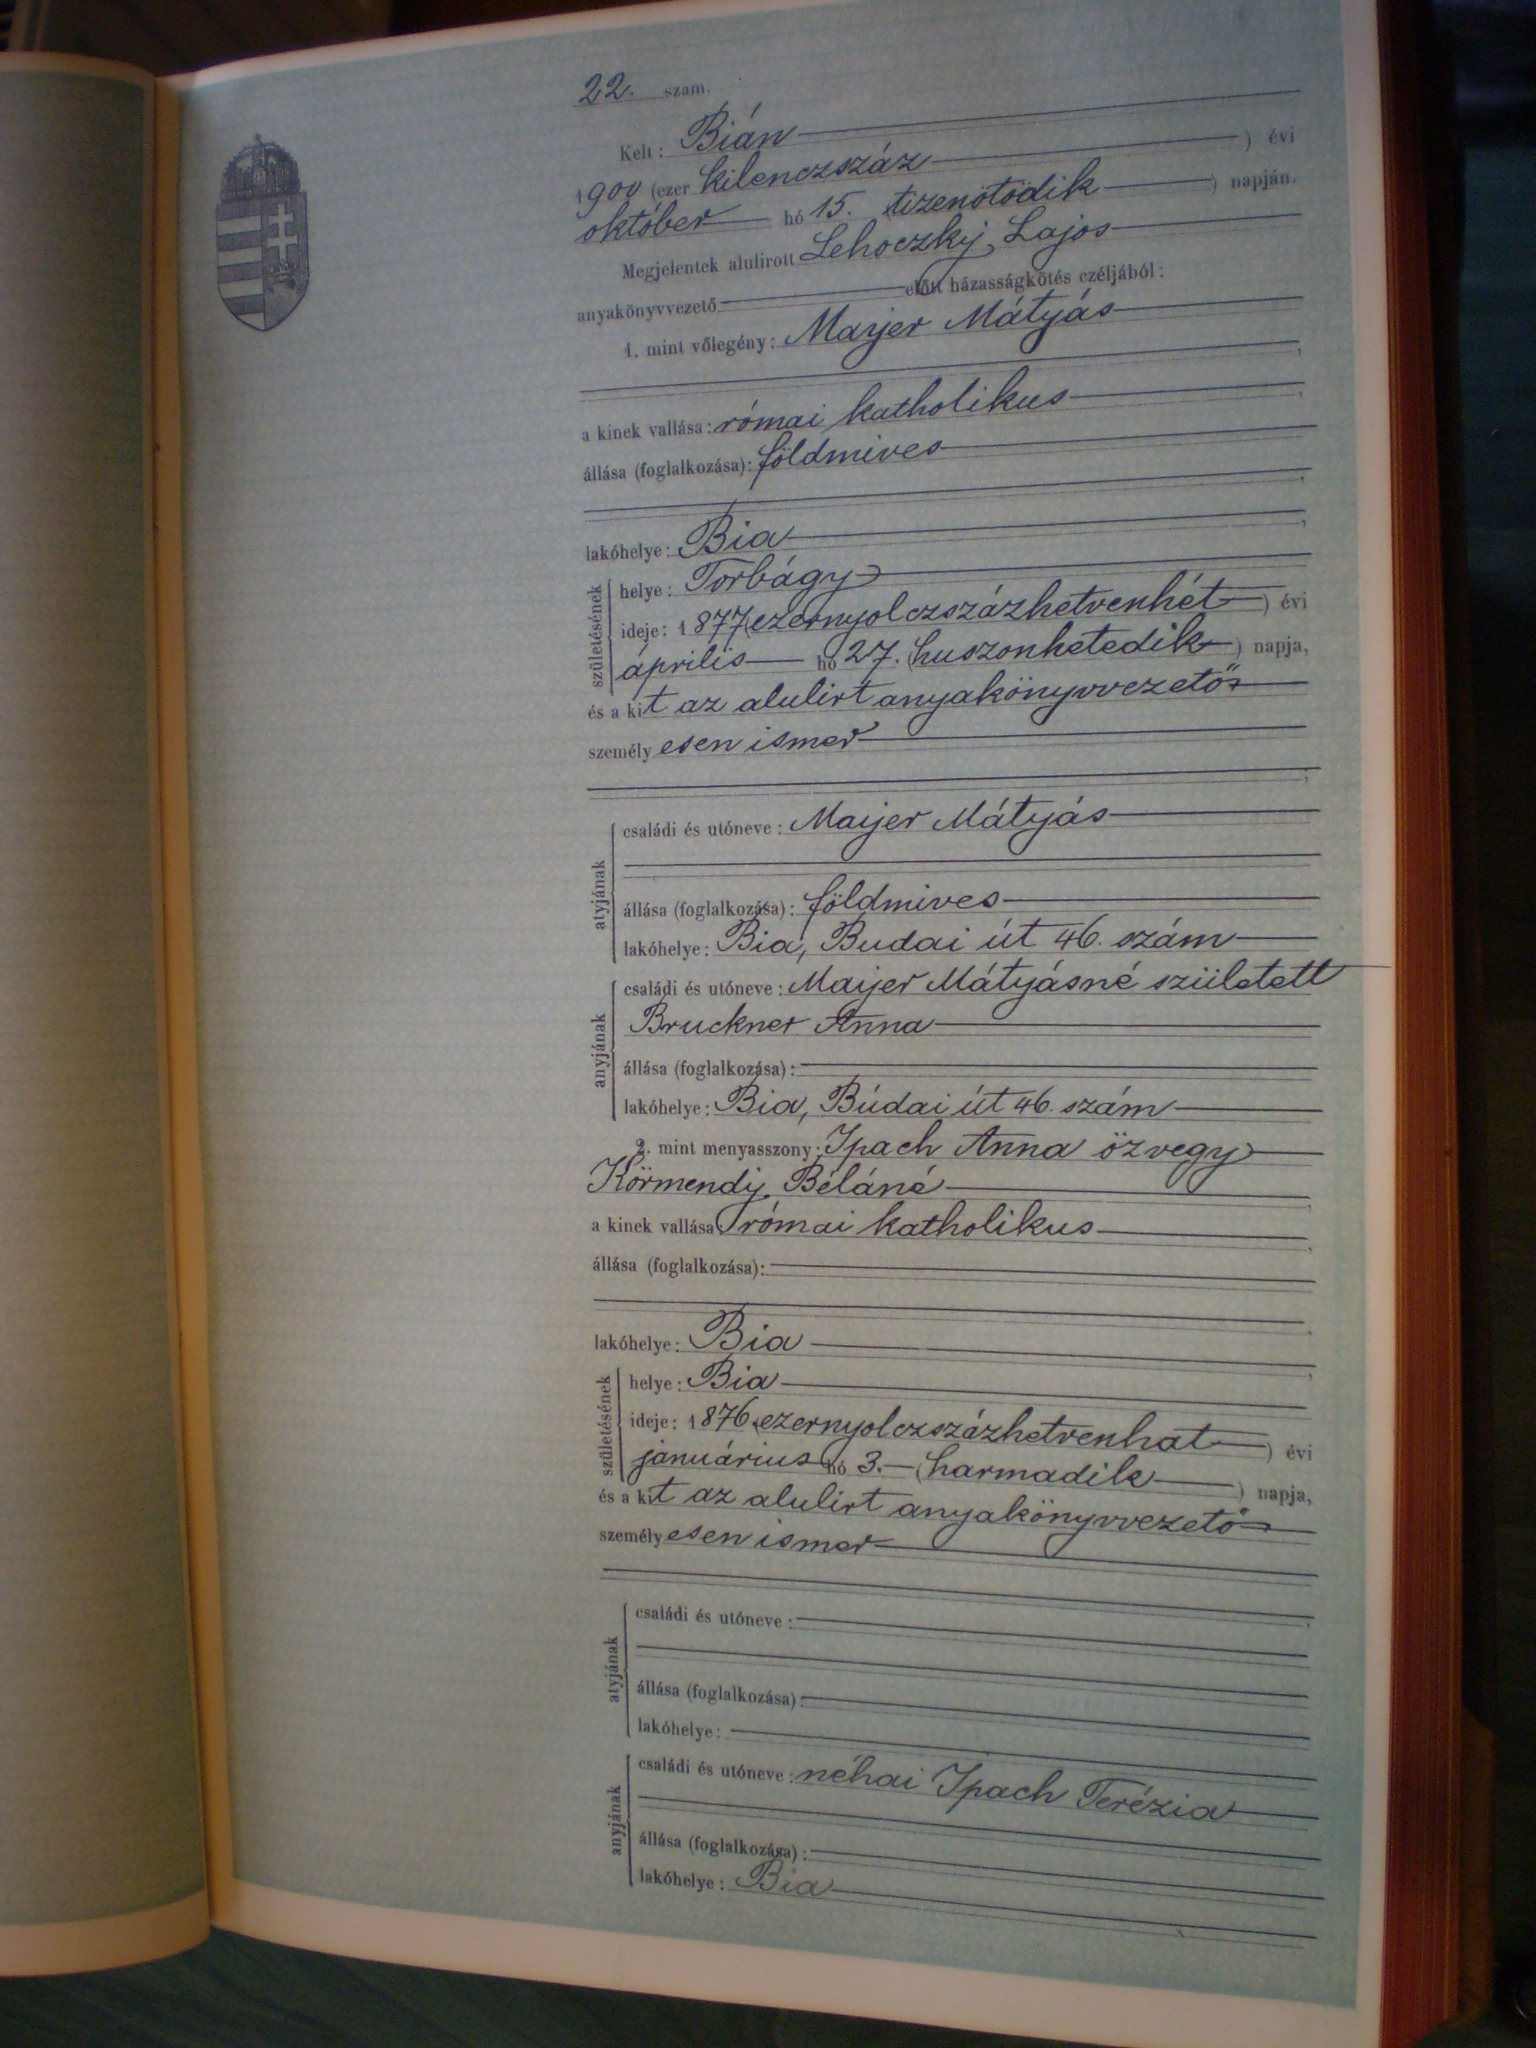 22. szam.
Kelt: Bián
1900 (ezer kilenczszáz) évi
október hó 15. tizenötödik) napján.
Megjelentek alulirott Lehoczky Lajos
anyakönyvvezető előtt házasságkötés czéljából:
1. mint vőlegény: Mayer Mátyás
a kinek vallása: római katholikus
állása (foglalkozása): földmives
lakóhelye: Bia
születésének
helye: Torbágy
ideje: 1877 (ezernyolczszázhetvenhét) évi
április hó 27. (huszonhetedik) napja,
és a kit az alulirt anyakönyvvezető
személyesen ismer
atyjának
családi és utóneve: Mayer Mátyás
állása (foglalkozása): földmives
lakóhelye: Bia, Budai út 46. szám
anyjának
családi és utóneve: Mayer Mátyásné született
Bruckner Anna
állása (foglalkozása):
lakóhelye: Bia, Búdai út 46. szám
2. mint menyasszony: Ipach Anna özvegy
Körmendy Béláné
a kinek vallása: római katholikus
állása (foglalkozása):
lakóhelye: Bia
születésének
helye: Bia
ideje: 1876 (ezernyolczszázhetvenhat) évi
januárius hó 3. (harmadik) napja,
és a kit az alulirt anyakönyvvezető
személyesen ismer
atyjának
családi és utóneve:
állása (foglalkozása):
lakóhelye:
anyjának
családi és utóneve: néhai Ipach Terézia
állása (foglalkozása):
lakóhelye: Bia